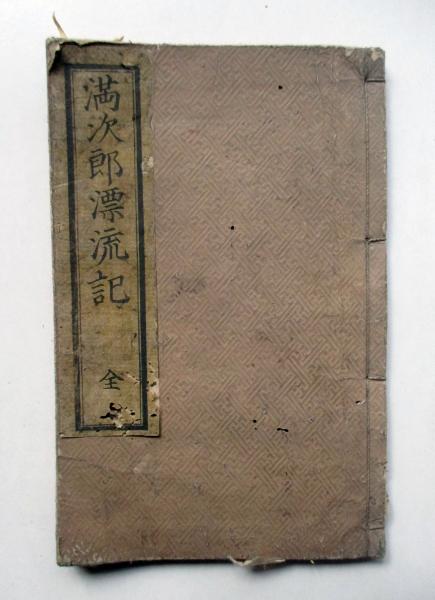 満次郎漂流記
全